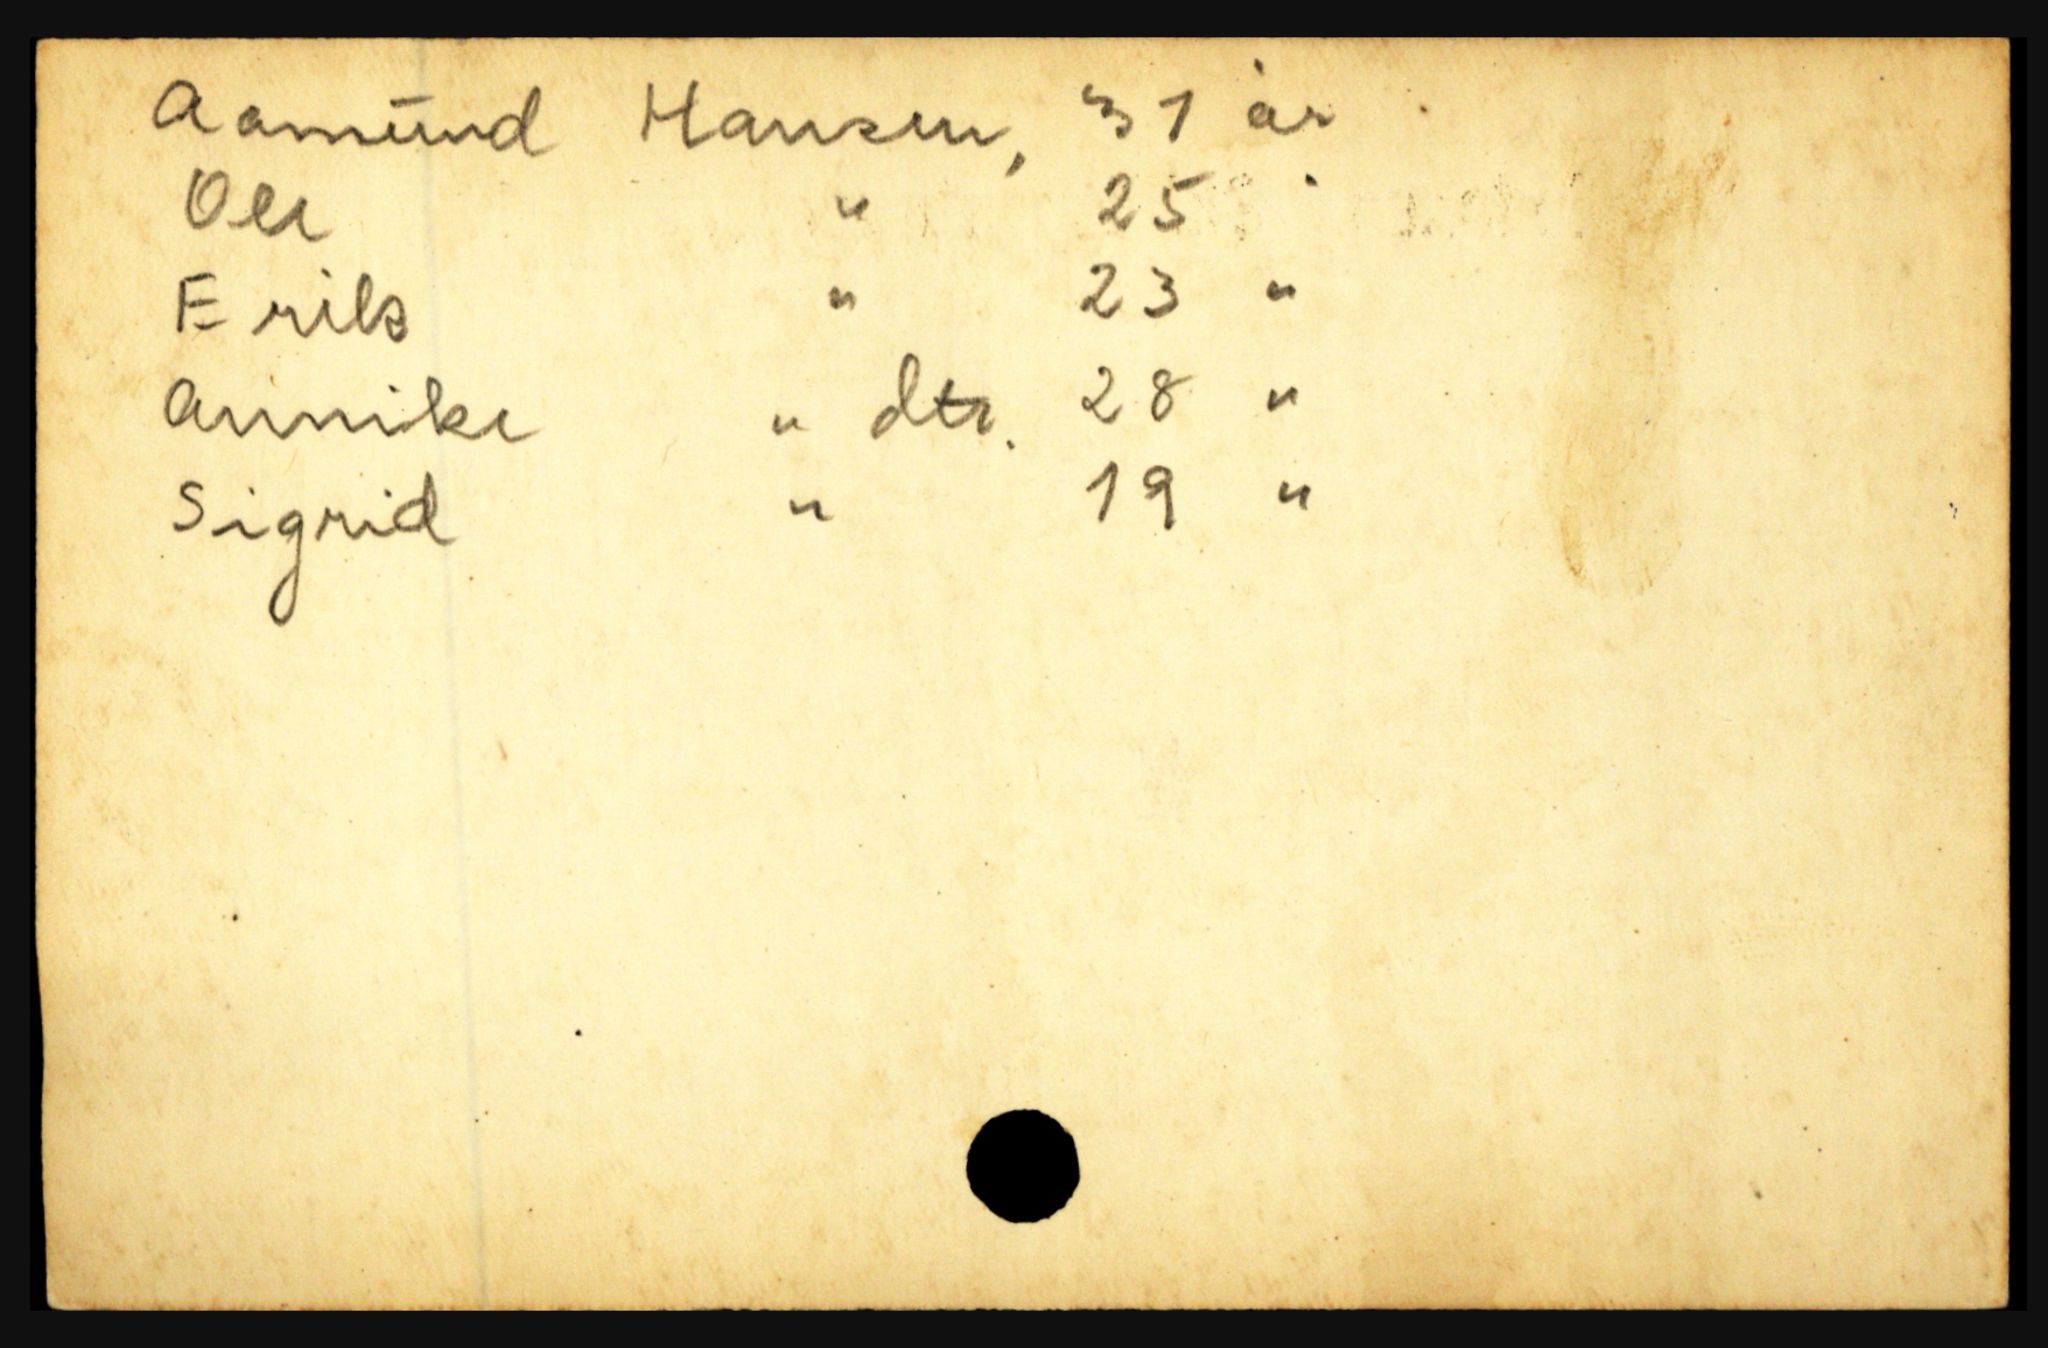 Aamund Hansen, 31 år
Ole " 25
Erik " 23 "
Annike " dtr. 28 "
Sigrid " 19 "